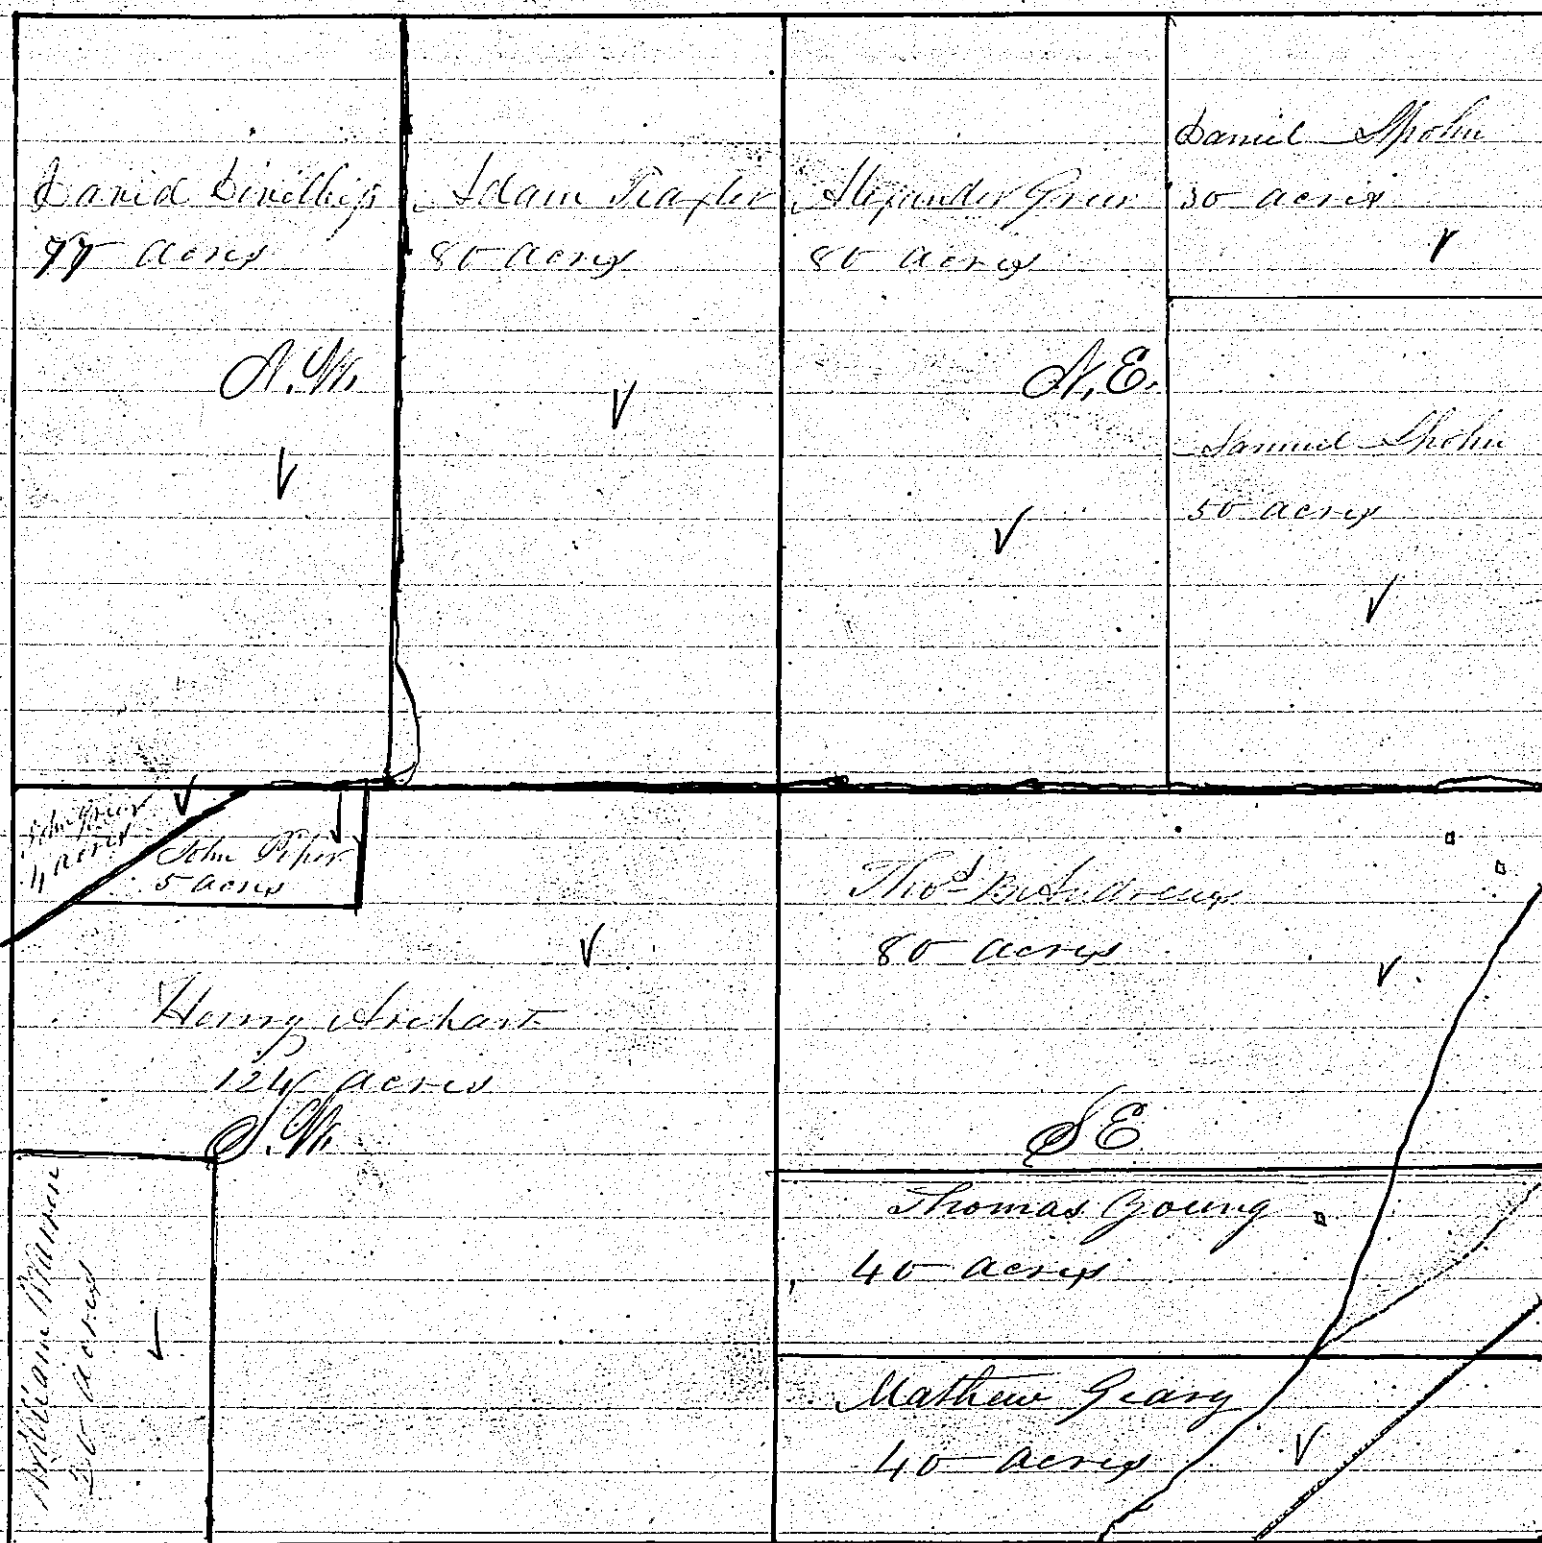 David
77 acres
N.W.
Adam Traxler
80 acres
Alexander Greer
80 acres
N.E.
Daniel Spohn
30 acres
Samuel Spohn
50 acres
John Greer
acres
John Piper
5 acres
Henry Arehart
124 acres
S.W.
William
20 acres
Thos B Andrews
80 acres
S E
Thomas Young
40 acres
Mathew Geary
40 acres